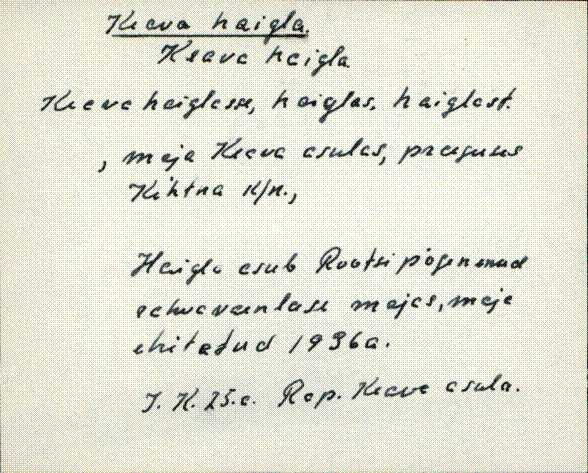 Keava haigla.
Keava haigla
Keava haiglasse, haiglas, haiglast.
, maja Keava asulas, praeguses
Kehtna k/n.,
Haigla asub Rootsi põgenenud
rahvavaenlase majas, maja
ehitatud 1936a.
J. K. 25.a. Rap. Keava asula.